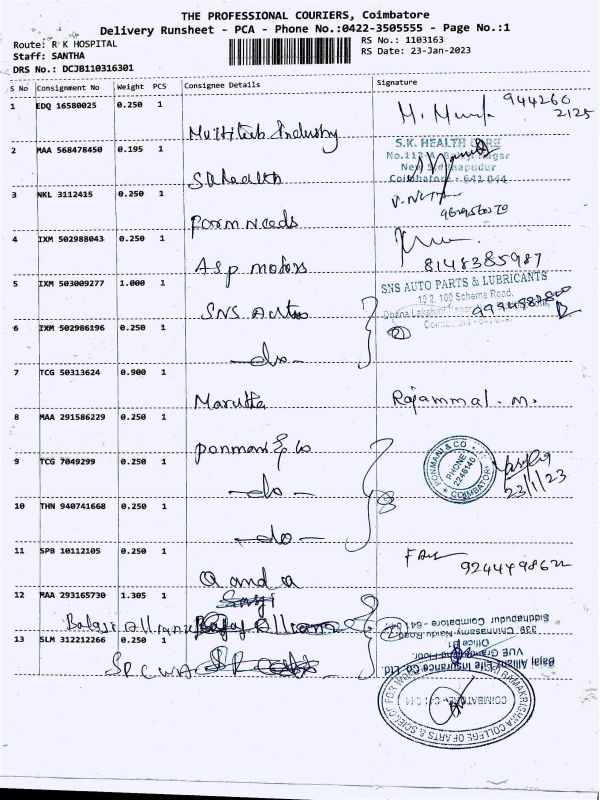 THE PROFESSIONAL COURIERS, Coimbatore
Delivery Runsheet - PCA - Phone No.:0422-3505555 - Page No.:1
Route: R K HOSPITAL
RS No.: 1103163
Staff: SANTHA
RS Date: 23-Jan-2023
DRS No.: DCJB110316301
S No Consignment No Weight PCS Consignee Details Signature
1 EDQ 16580025 0.250 1
944260
2125
Industry
2 MAA 568478450 0.195 1
S.K. HEALTH CARE
Sk health
Coimbatore - 641 044
3 NKL 3112415 0.250 1
Form Needs
4 IXM 502988043 0.250 1
Asp motors
8148385987
5 IXM 503009277 1.000 1
SNS AUTO PARTS & LUBRICANTS
102, 100 Scheme Road,
SNS Autos
6 IXM 502986196 0.250 1
2
-do-
7 TCG 50313624 0.900 1
Marutha
Rajammal. m.
8 MAA 291586229 0.250 1
ponmani & co
PONMANI & CO
PHONE
2246140
COIMBATORE
9 TCG 7049299 0.250 1
23/1/23
-do-
3
10 THN 940741668 0.250 1
-do-
11 SPB 10112105 0.250 1
Q and a
12 MAA 293165730 1.305 1
Bajaj Allianz
2
13 SLM 312212266 0.250 1
SRCWA
Bajaj Allianz Life Insurance Co. Ltd.
VUE Grande
Office B1
339, Chinnasamy Naidu Road
Siddhapudur Coimbatore - 641 044
RAMAKRISHNA COLLEGE OF ARTS & SCIENCE FOR WOMEN
COIMBATORE - 641 044